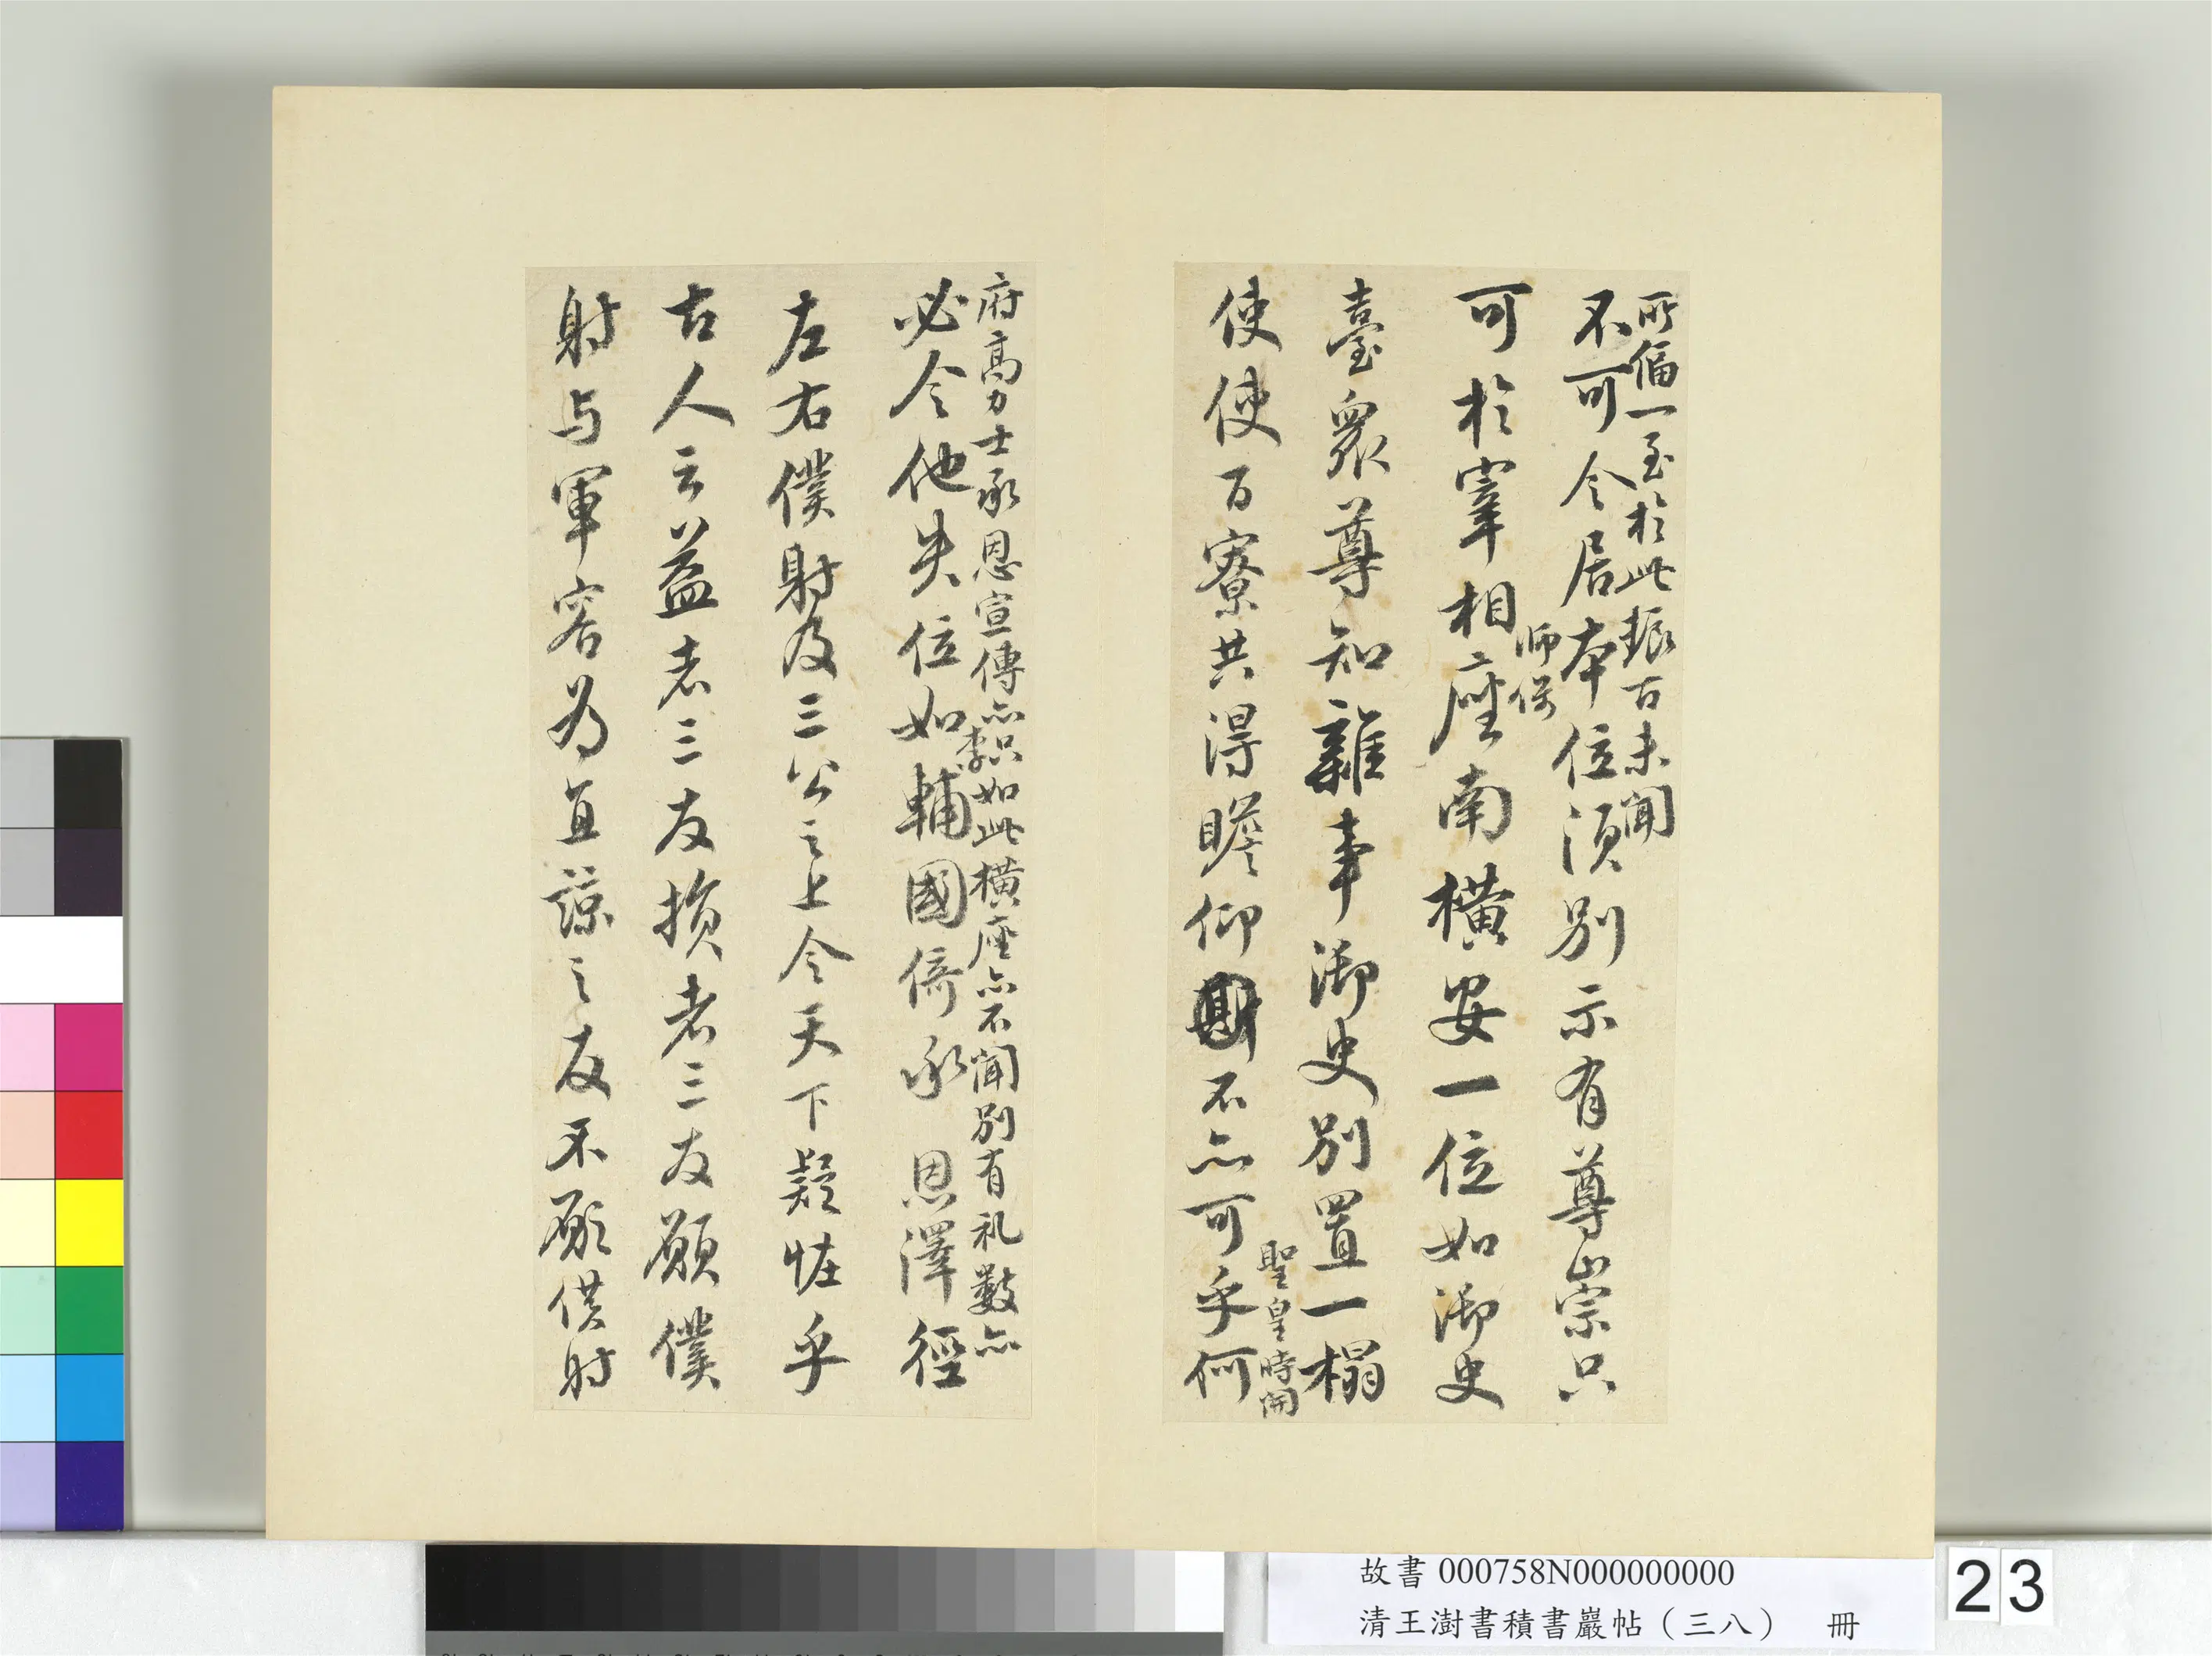 所偪一至於此振古未聞
不可令居本位須別示有尊崇只
師保
可於宰相座南橫安一位如御史
臺眾尊知雜事御史別置一榻
聖皇時開
使使百寮共得瞻仰不亦可乎何
府高力士承恩宣傳亦只如此橫座亦不聞別有礼數亦
李
必令他失位如輔國倚承恩澤徑
左右僕射及三公之上令天下疑恠乎
古人云益者三友損者三友願僕
射与軍容為直諒之友不願僕射
故書 000758N000000000
清王澍書積書巖帖（三八） 冊
23